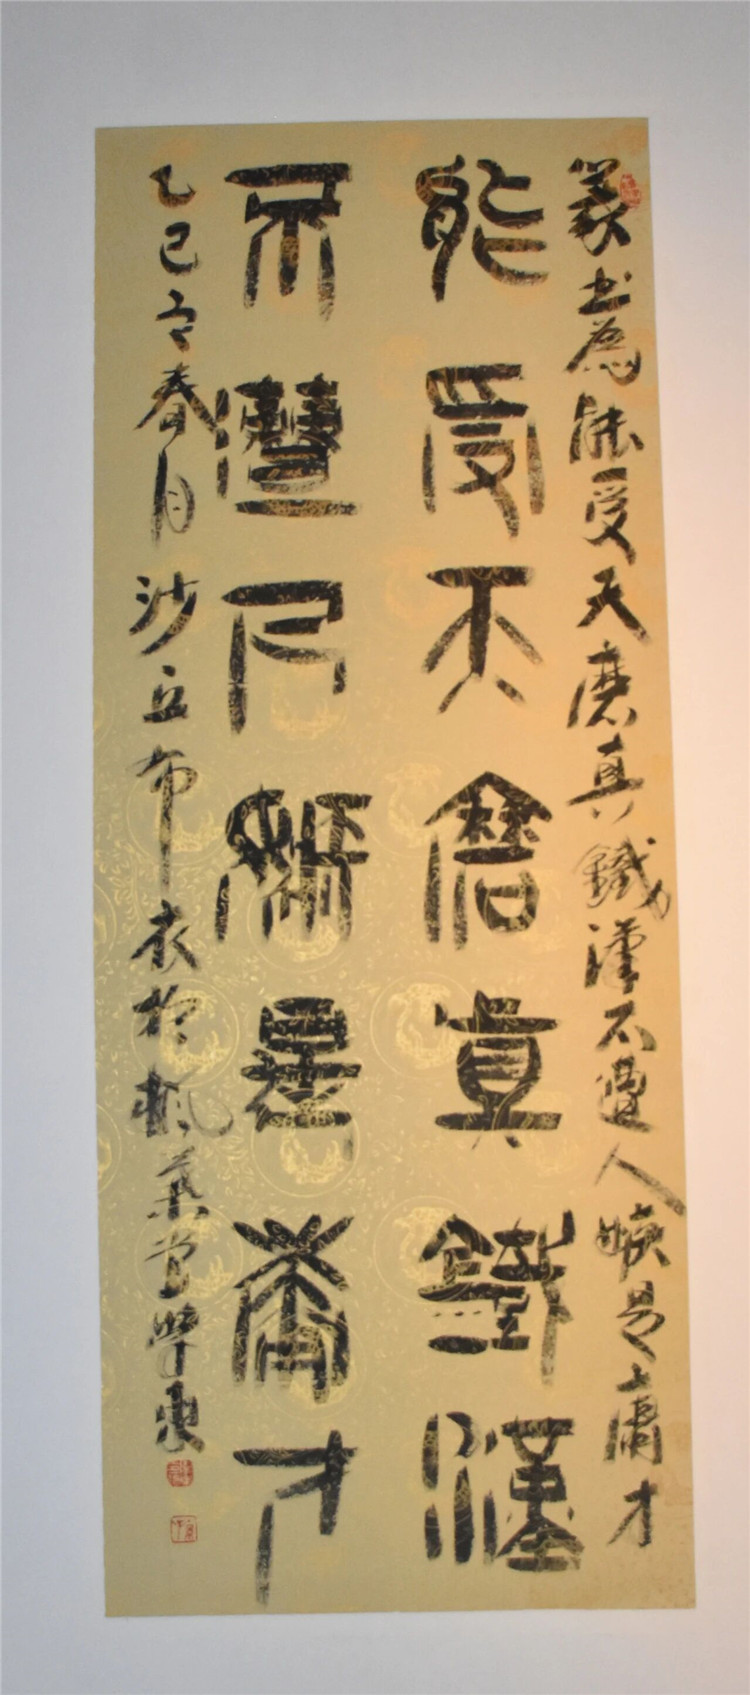 篆书为能受天磨真鐵漢不遭人嫉是庸才
能受天磨真鐵漢
不遭人嫉是庸才
乙巳之春月沙丘布衣於楓葉堂學東